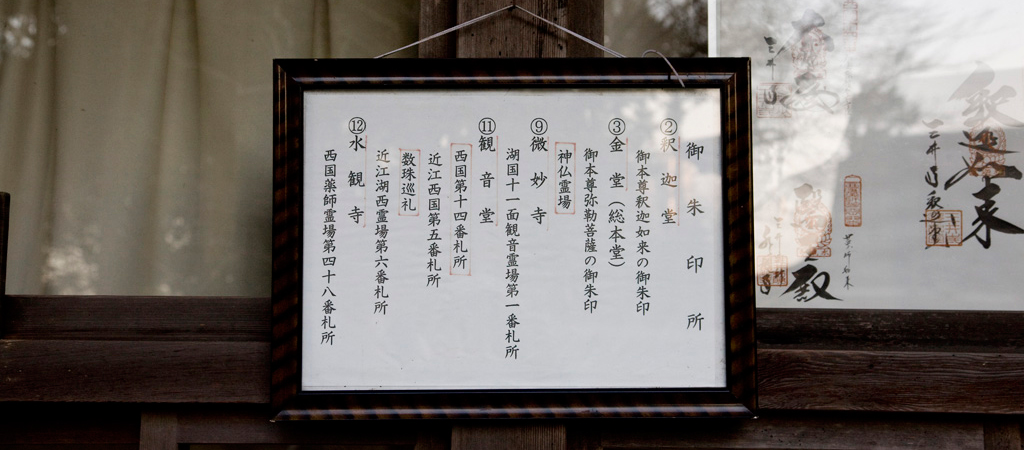 御朱印所
②釈迦堂
御本尊釈迦如来の御朱印
③金堂(総本堂)
御本尊弥勒菩薩の御朱印
神仏霊場
⑨微妙寺
湖国十一面観音霊場第一番札所
⑪観音堂
西国第十四番札所
近江西国第五番札所
数珠巡礼
近江湖西霊場第六番札所
⑫水観寺
西国薬師霊場第四十八番札所